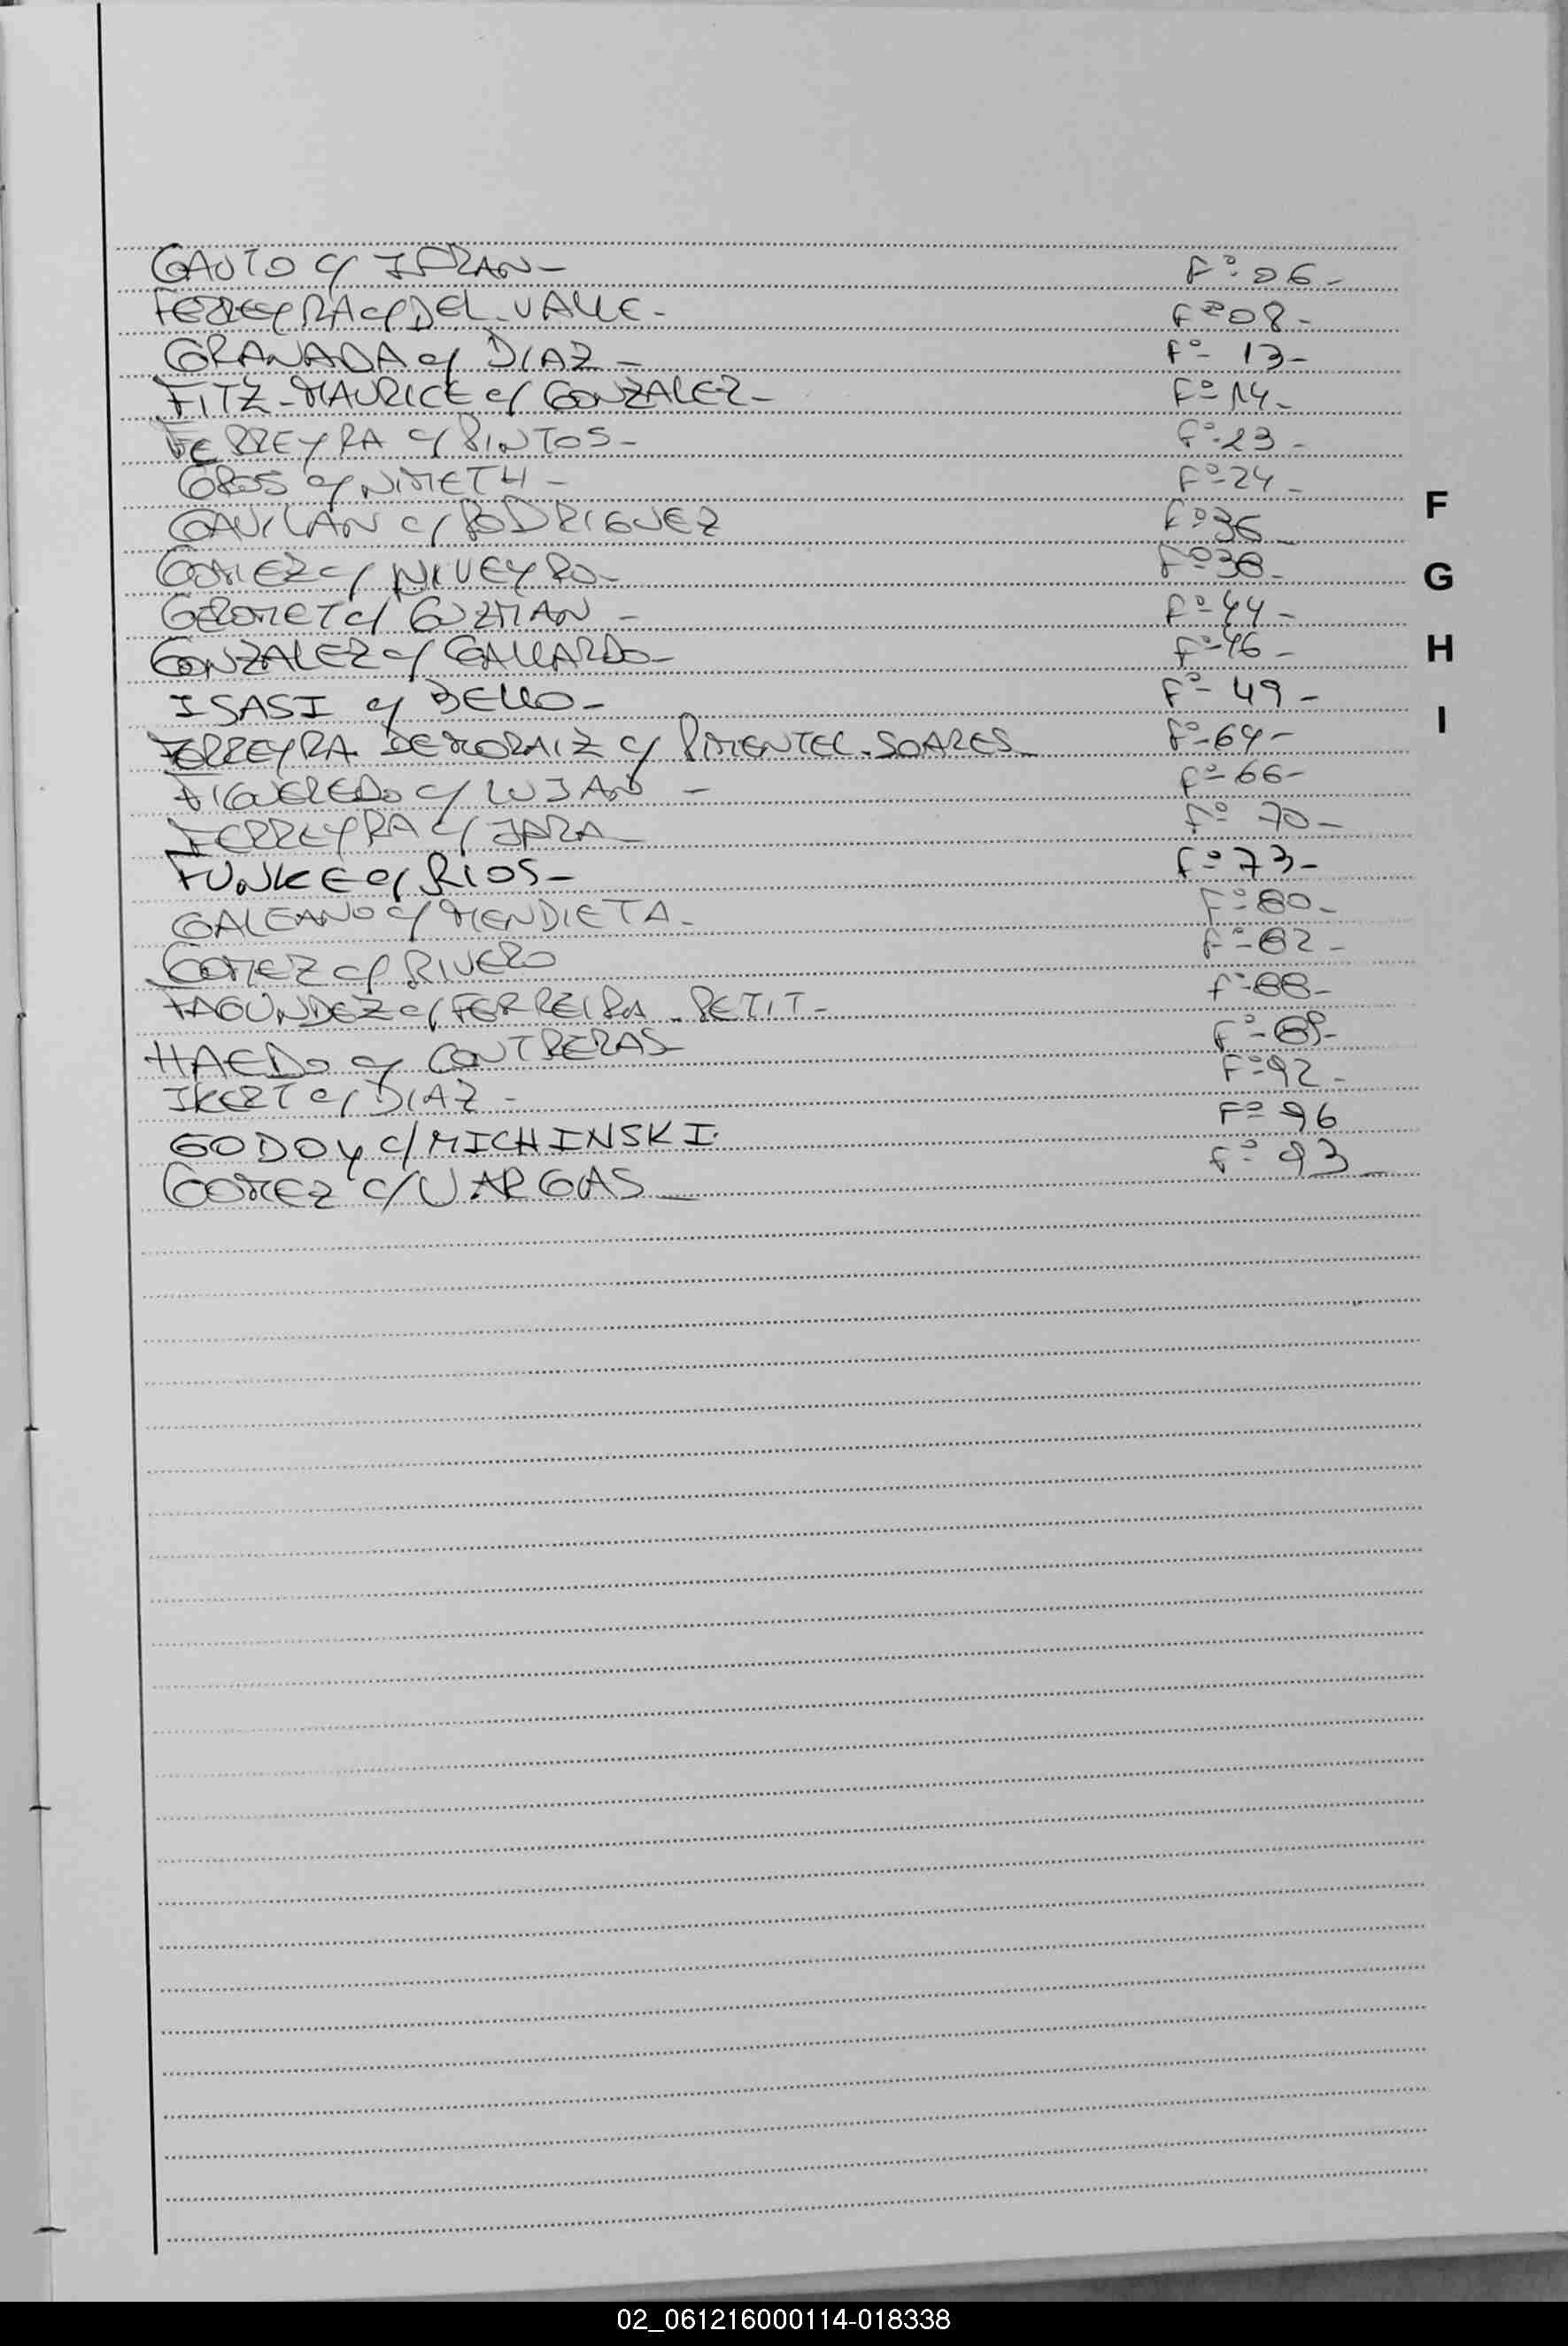 GAUTO c/ IFRAN- Fº 06-
FERREYRA c/ DEL-VALLE- Fº 08-
GRANADA c/ DIAZ- Fº 13-
FITZ-MAURICE c/ GONZALEZ- Fº 14-
FERREYRA c/ PINTOS- Fº 23-
GROS c/ NIMETH- Fº 24-
GAVILAN c/ RODRIGUEZ Fº 36-
GOMEZ c/ NIVEYRO- Fº 38-
GEROMET c/ GUZMAN- Fº 44-
GONZALEZ c/ GALLARDO- Fº 46-
ISASI c/ BELLO- Fº 49-
FERREYRA DEMORAIZ c/ PIMENTEL-SOARES- Fº 64-
FIGUEREDO c/ LUJAN- Fº 66-
FERREYRA c/ JARA- Fº 70-
FUNKE c/ RIOS- Fº 73-
GALEANO c/ MENDIETA- Fº 80-
GOMEZ c/ RIVERO Fº 82-
FAGUNDEZ c/ FERREIRA-PETIT- Fº 88-
HAEDO c/ CONTRERAS Fº 89-
IKERT c/ DIAZ- Fº 92-
GODOY c/ MICHINSKI. Fº 96
GOMEZ c/ VARGAS- Fº 93-
F
G
H
I
02_061216000114-018338